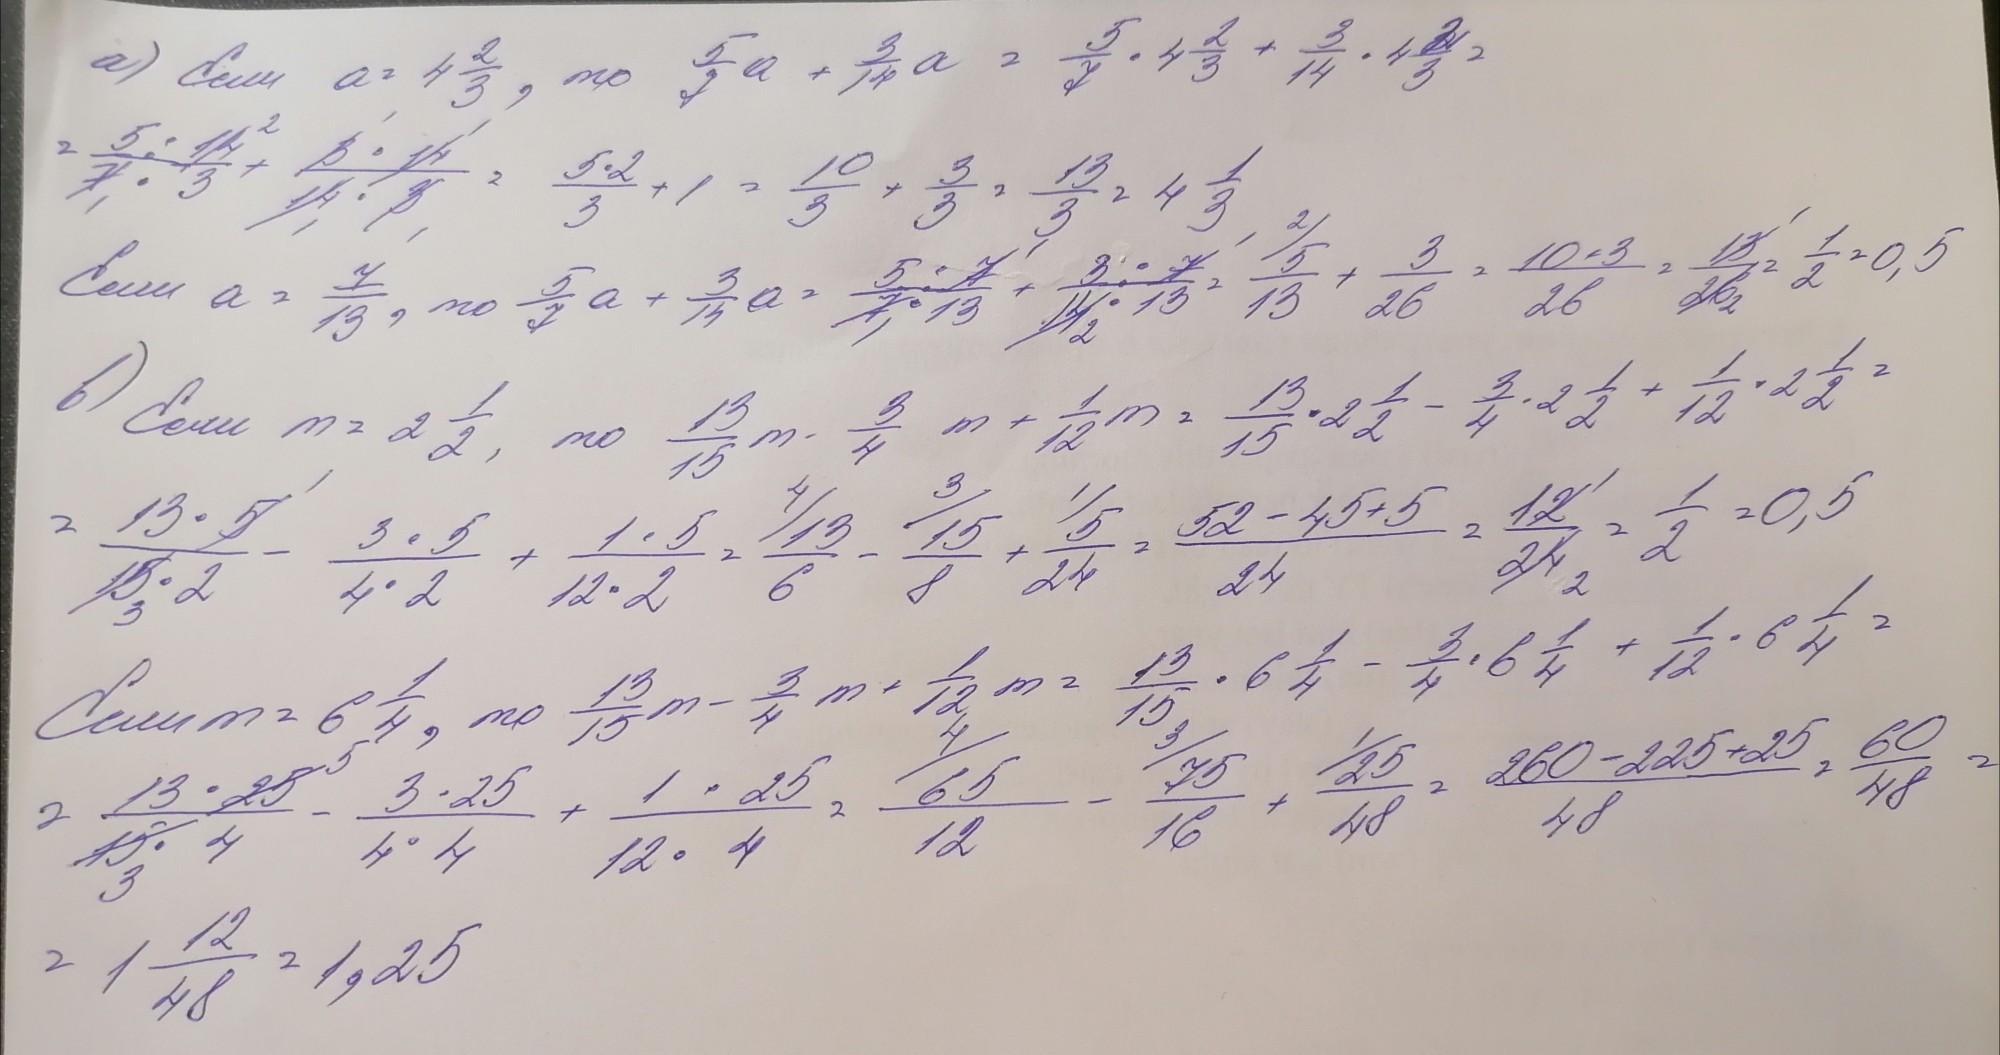 а) Если a = 4 2/3, то 5/7 a + 3/14 a = 5/7 · 4 2/3 + 3/14 · 4 2/3 =
= 5 · 14 2 / 7 1 · 3 + 3 1 · 14 1 / 14 1 · 3 1 = 5·2/3 + 1 = 10/3 + 3/3 = 13/3 = 4 1/3
Если a = 7/13, то 5/7 a + 3/14 a = 5 · 7 1 / 7 1 · 13 + 3 · 7 1 / 14 2 · 13 = 2/ 5/13 + 1/ 3/26 = 10+3/26 = 13 1 / 26 2 = 1/2 = 0,5
б) Если m = 2 1/2, то 13/15 m - 3/4 m + 1/12 m = 13/15 · 2 1/2 - 3/4 · 2 1/2 + 1/12 · 2 1/2 =
= 13 · 5 1 / 15 3 · 2 - 3 · 5 / 4 · 2 + 1 · 5 / 12 · 2 = 4/ 13/6 - 3/ 15/8 + 1/ 5/24 = 52 - 45 + 5 / 24 = 12 1 / 24 2 = 1/2 = 0,5
Если m = 6 1/4, то 13/15 m - 3/4 m + 1/12 m = 13/15 · 6 1/4 - 3/4 · 6 1/4 + 1/12 · 6 1/4 =
= 13 · 25 5 / 15 3 · 4 - 3 · 25 / 4 · 4 + 1 · 25 / 12 · 4 = 4/ 65/12 - 3/ 75/16 + 1/ 25/48 = 260 - 225 + 25 / 48 = 60/48 =
= 1 12/48 = 1,25